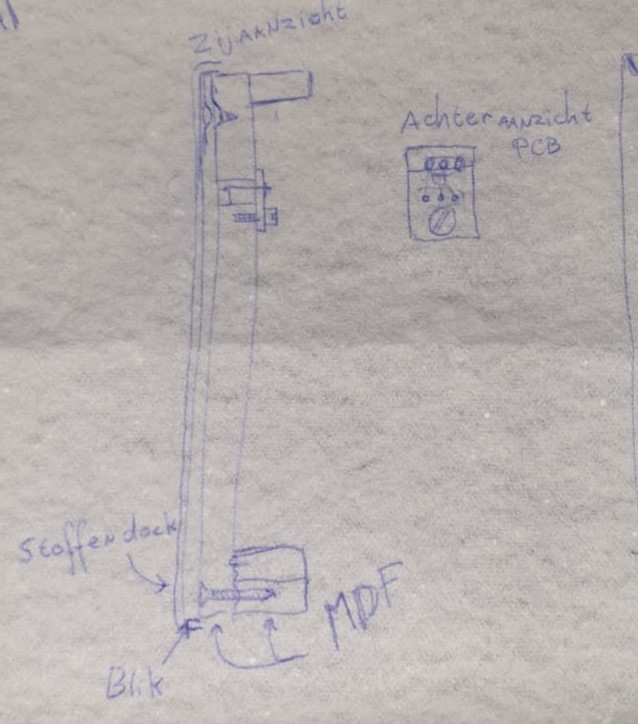 ZijAANzicht
AchterAANzicht
PCB
Stoffen doek
MDF
Blik